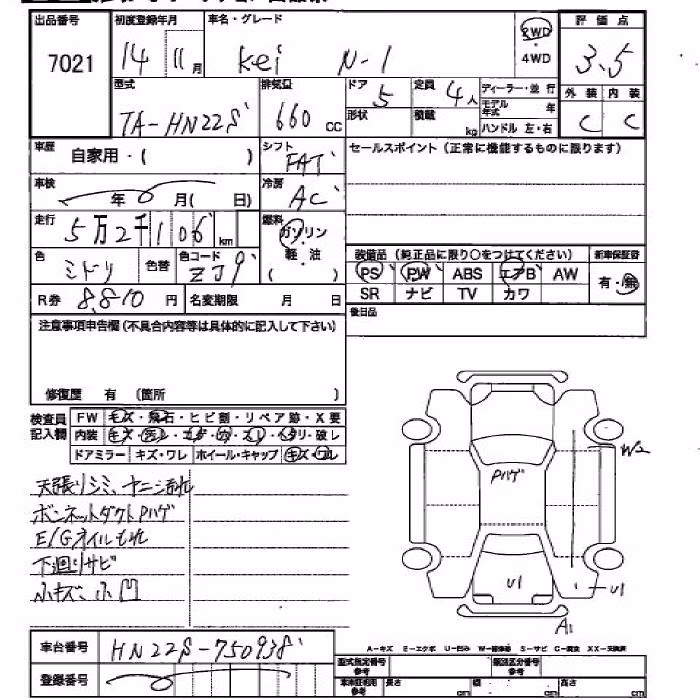 出品番号 7021
初度登録年月 14 11月
車名・グレード Kei N-1
2WD・4WD
評価点 3.5
型式 TA-HN22S
排気量 660 CC
ドア 5
形状
定員 4人
積載 kg
ディーラー・並行
モデル年式 年
ハンドル 左・右
外装 C 内装 C
車歴 自家用・( )
シフト FAT
セールスポイント(正常に機能するものに限ります)
車検 年 月( 日)
冷房 AC
走行 5万2千106km
燃料 ガソリン・軽油 ( )
色 ミドリ 色替 色コード ZJ9
装備品(純正品に限り○をつけてください) 新車保証書
PS PW ABS エアB AW 有・無
SR ナビ TV カワ
R券 8,810円 名変期限 月 日
後日品
注意事項申告欄(不具合内容等は具体的に記入して下さい)
修復歴 有 (箇所 )
検査員記入欄
FW キズ・飛石・ヒビ割・リペア跡・X要
内装 キズ・
ドアミラー キズ・ワレ ホイール・キャップ キズ・ワレ
天張りシミ、ヤニ汚れ
ボンネットダクトPハゲ
E/Gオイルもれ
下廻りサビ
小キズ 小凹
Pハゲ
W2
U1
U1
A1
車台番号 HN22S-750938
登録番号
A-キズ E-エクボ U-凹み W-補修跡 S-サビ C-腐食 XX-交換済
型式指定番号参考 類別区分番号参考
車体証利用参考 長さ cm 幅 cm 高さ cm